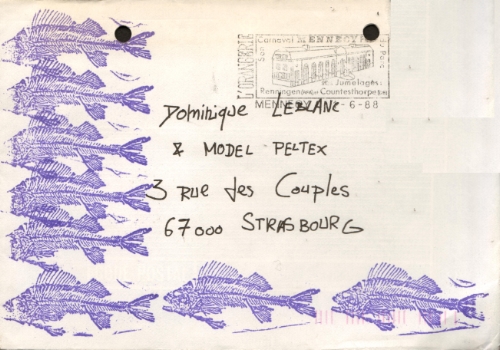 Son Carnaval MENNECY Son Parc
Jumelages:
Renningen (RFA) Countesthorpe (GB)
MENNECY -6-88
Dominique LEBLANC
& MODEL PELTEX
3 rue des Couples
67000 STRASBOURG